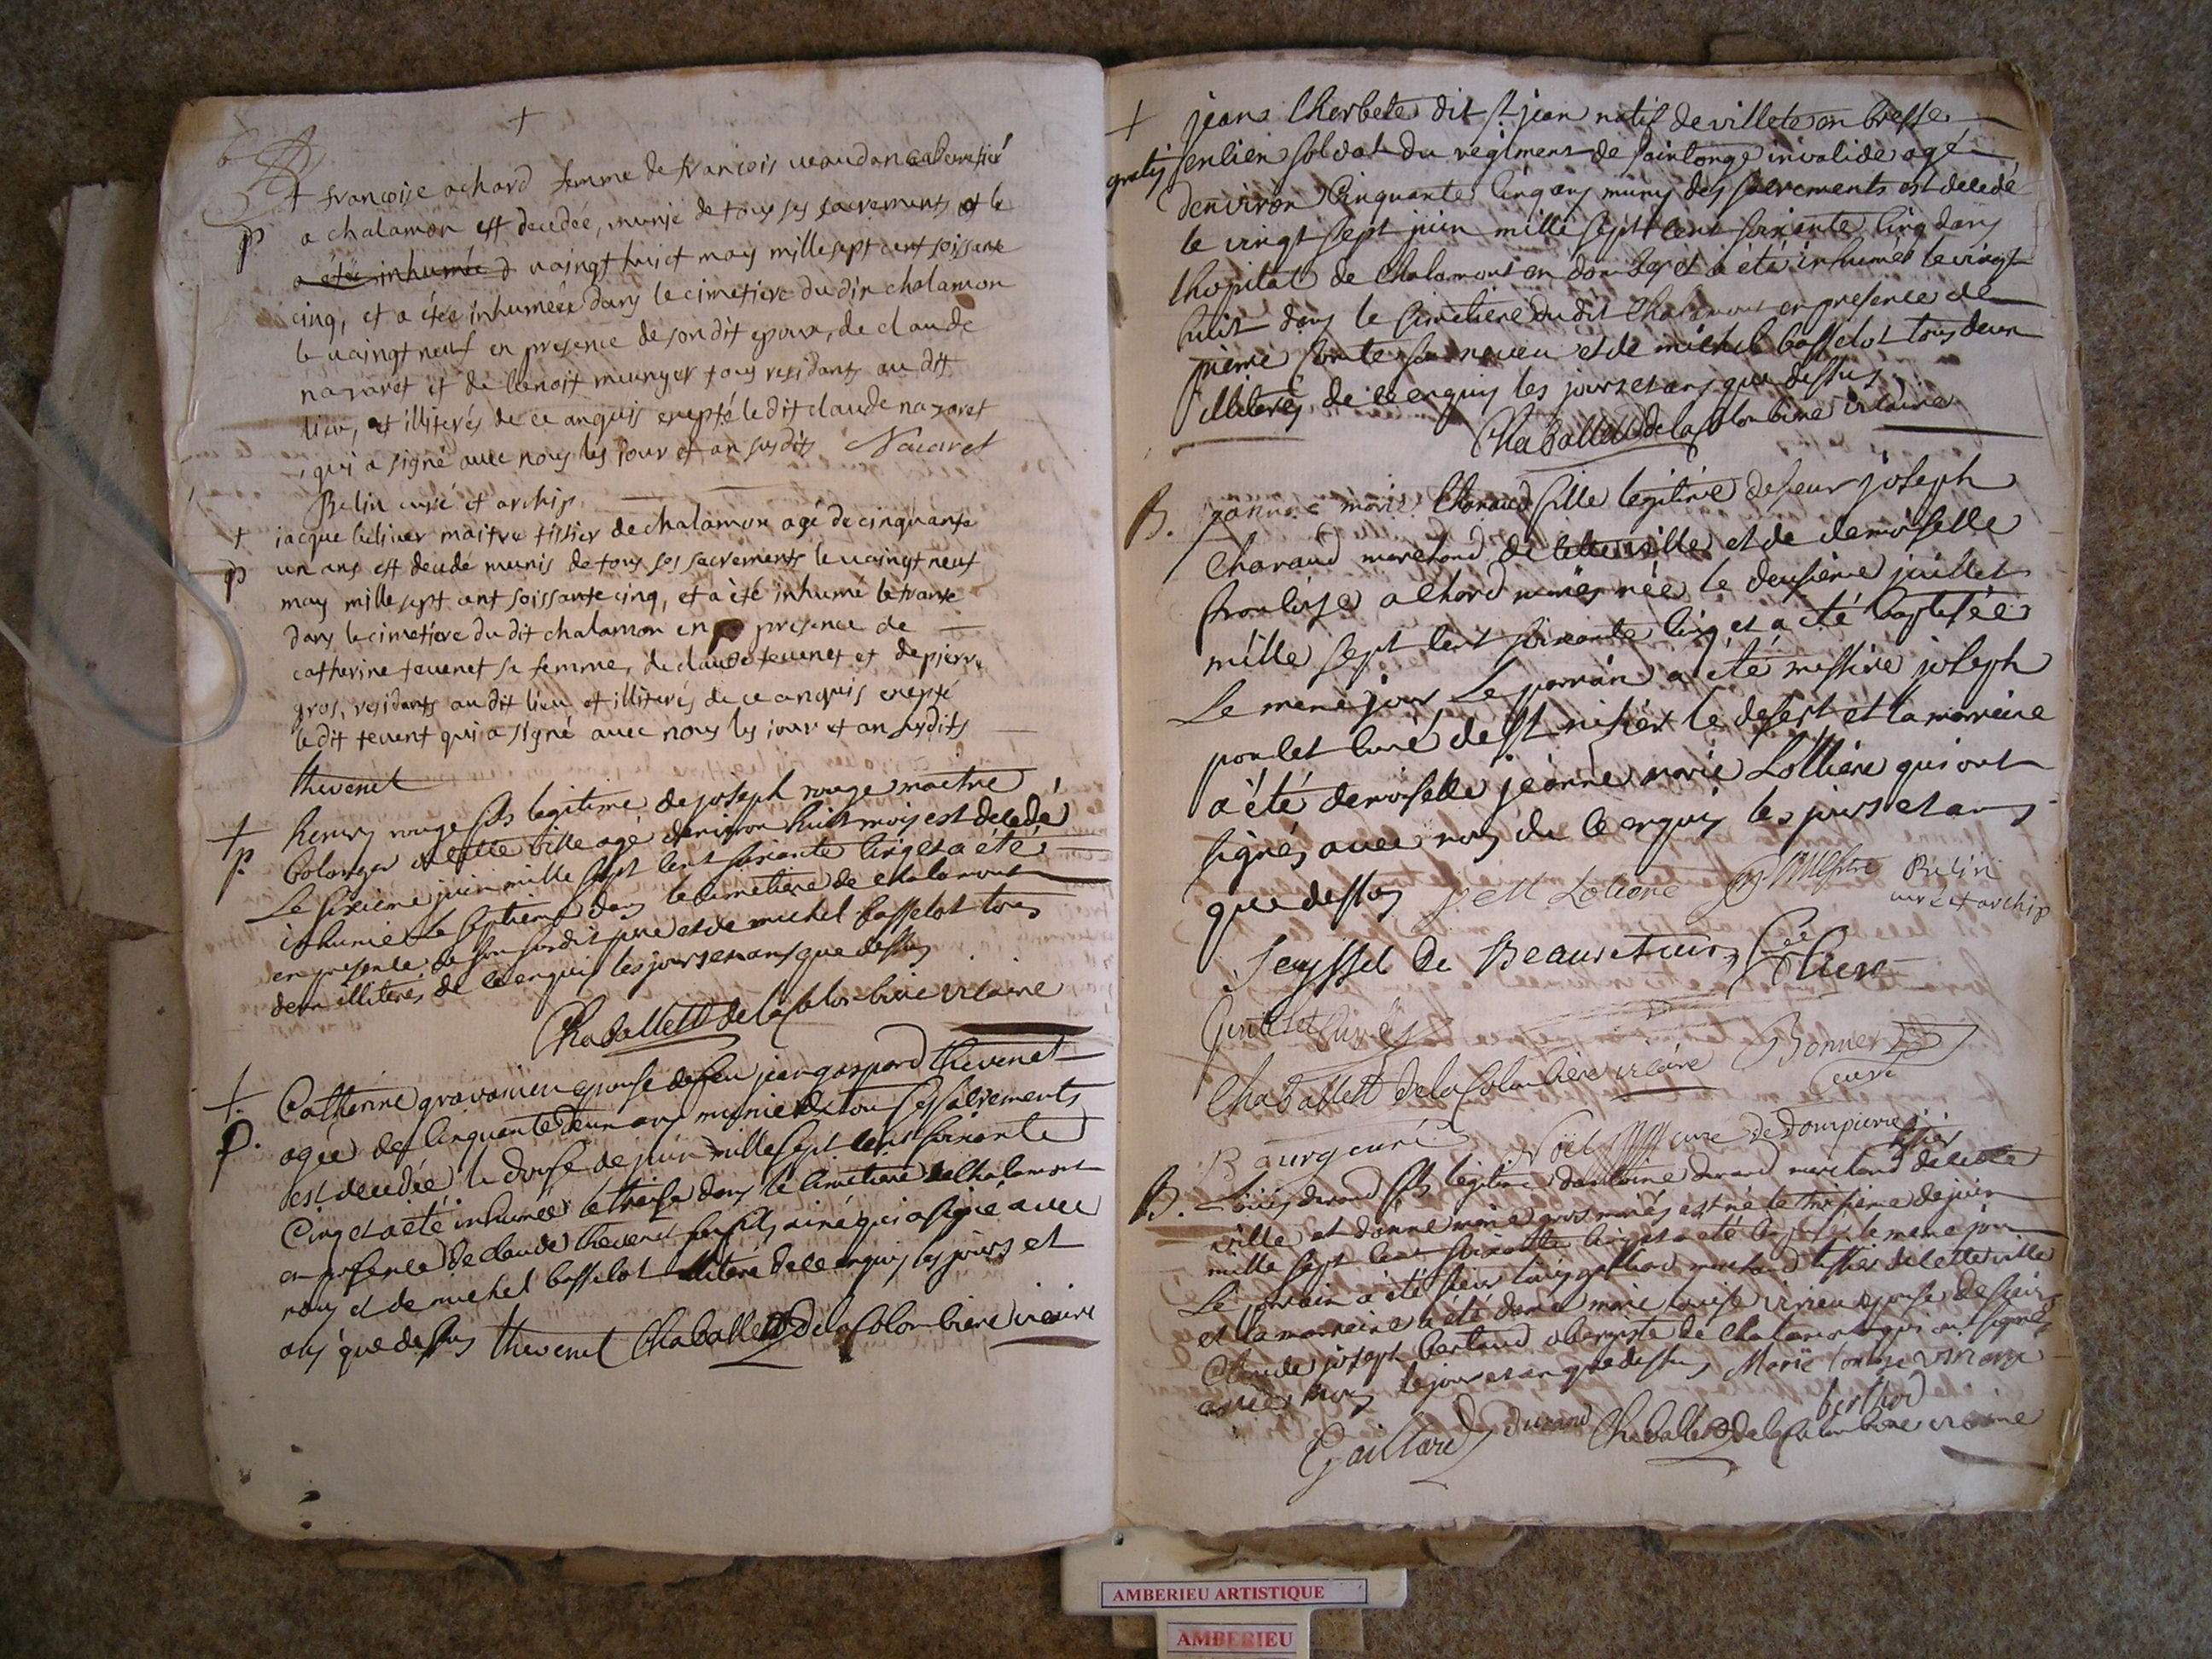 +
6
+ francoise achard femme de francois ueaudan cabaretier
p a chalamon est decedée, munie de tous ses sacrements et le
a étée inhumée uaingt huict may mille sept cent soissante
cinq, et a étée inhumée dans le cimetiere du dit chalamon
le uaingt neuf en presence de son dit epoux, de claude
nazaret et de benoit meunyer tous residants au dit
lieu, et illiterés de ce anquis exepté le dit claude nazaret
qui a signé auec nous les jour et an susdits Nazaret
Belin curé et archip.
+ jacque maitre tissier de chalamon agé de cinquante
p un ans est decedé munis de tous ses sacrements le uaingt neuf
may mille sept cent soissante cinq, et a été inhumé le trante
dans le cimetiere du dit chalamon en presence de
catherine teuenet sa femme, de claude teuenet et de pierre
gros, residants au dit lieu et illiterés de ce anquis exepté
le dit teuent qui a signé auec nous les jour et an susdits
thevenet
+ henry rouge fils legitime de joseph rouge maitre
p. bolanger de cette ville agé denviron huit mois est decedé
Le sixieme juin mille sept cent soixante cinq et a été
inhumé le septieme dans le cimetiere de chalamont
en presence de son susdit pere et de michel basselot tous
deux illiterés de ce enquis les jours et ans que dessus
Chaballett de la Colombiere vicaire
+. Catherine gravanieu epouse de feu jean gaspard thevenet
p. agée de cinquante deux ans munie de tous ses sacrements
est decedée le douse de juin mille sept cent soixante
cinq et a été inhumée le treise dans le cimetiere de chalamont
en presence de claude thevenet son fils ainé qui a signé avec
nous et de michel basselot illiteré de ce enquis les jours et
ans que dessus thevenet Chaballett de la Colombiere vicaire
+ jean Cherbete dit st jean natif de villete en bresse
gratis soldat du regiment de saintonge invalide agé
denviron cinquante cinq ans munis des sacrements est decedé
le vingt sept juin mille sept cent soixante cinq dans
lhopital de chalamont en dombes et a été inhumé le vingt
huit dans le cimetiere du dit chalamont en presence de
pierre conte son neveu et de michel basselot tous deux
illiterés de ce enquis les jours et ans que dessus
Chaballett de la Colombiere vicaire
B. jeanne marie Charaud fille legitime de sieur joseph
Charaud marchand de cette ville et de demoiselle
francoise achard mariés née le deusieme juillet
mille sept cent soixante cinq et a été baptisée
Le meme jour Le parrain a été messire joseph
poulet curé de st nisier le desert et la marreine
a été demoiselle jeanne marie Lolliere qui ont
signés avec nous de ce enquis les jours et ans
que dessus j M Loliere Belin
curé et archip
Seyssel de Beauretour
Chaballett de la Colombiere vicaire Bonner
curé
Bourg curé Noel curé de dompierre
tissier
B. Louis durand fils legitime dantoine durand marchand de cette
ville et danne marie gros mariés est né le troisieme de juin
mille sept cent soixante cinq et a été baptisé le meme jour
Le parrain a été sieur louis galliard marchand tissier de cette ville
et la marreine a été dame marie louise virieu epouse de sieur
Claude joseph bertaud aubergiste de chalamont qui ont signés
avec nous le jour et an que dessus Marie louise
berthod
Gaillard durand Chaballett de la Colombiere vicaire
AMBERIEU ARTISTIQUE
AMBERIEU